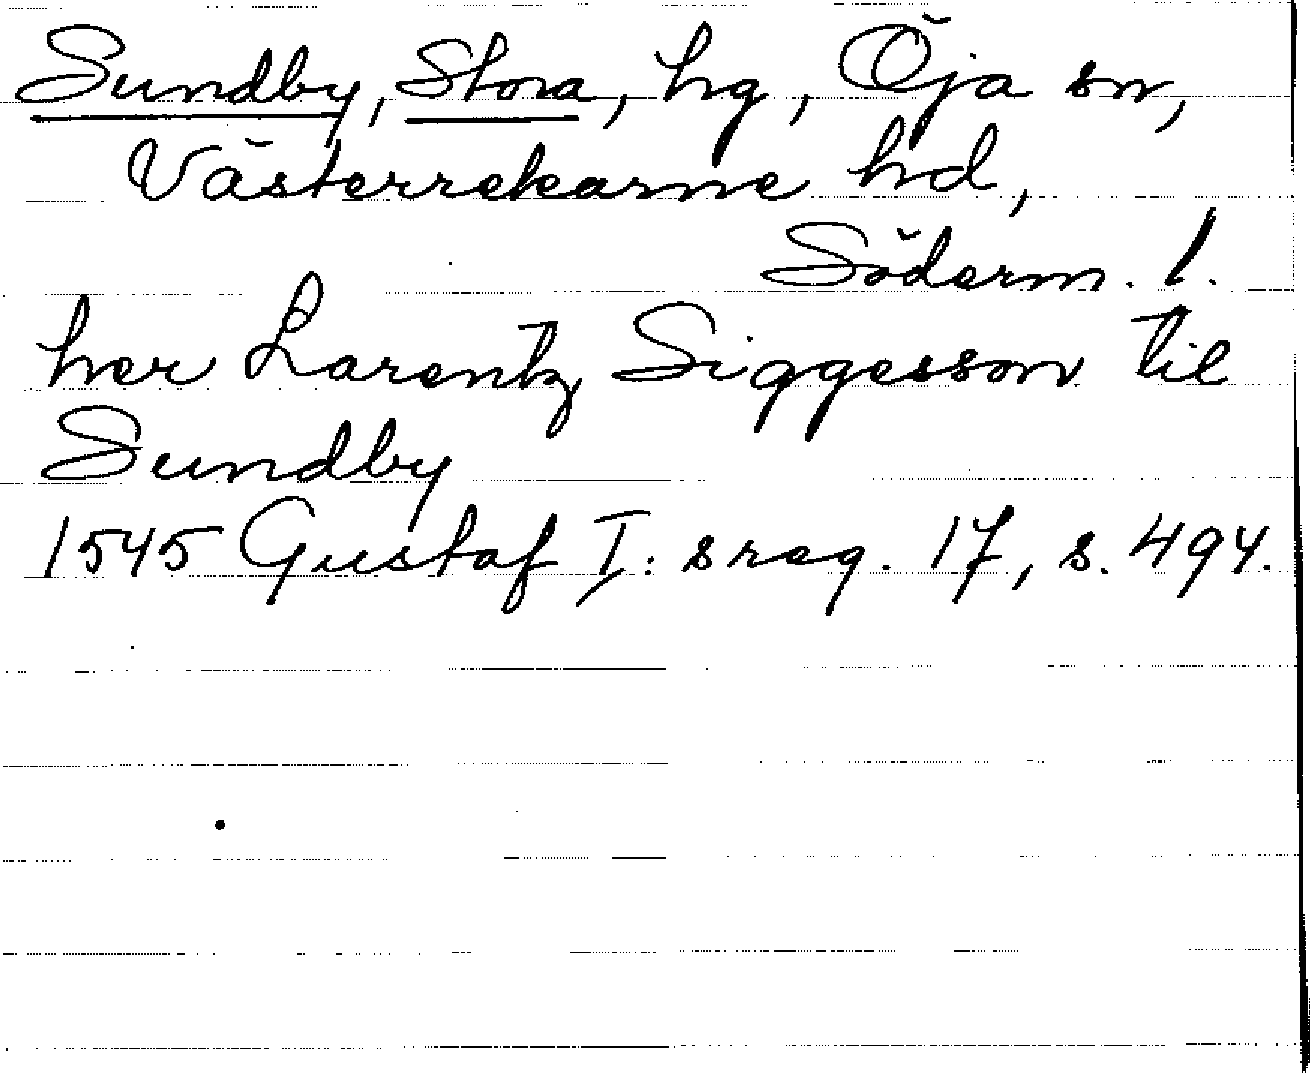 Sundby, Stora, hg, Öja sn,
Västerrekarne hd,
Söderm. l.
her Larentz Siggesson til
Sundby
1545 Gustaf I: s reg. 17, s. 494.